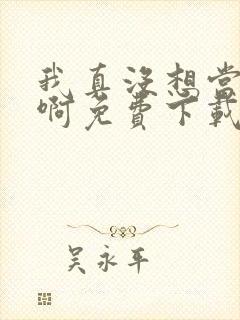 我真没想当
啊免费下载
吴永平